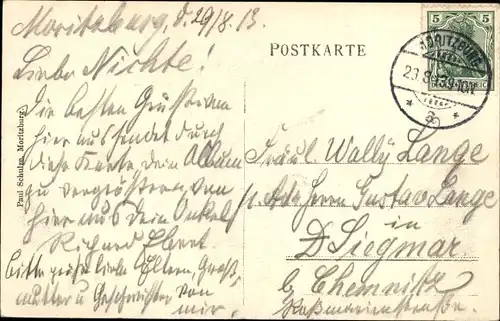 Moritzburg, d. 29/8.13.
POSTKARTE
5 5
MORITZBURG
29.8.13.9-10N.
* a *
Liebe Nichte!
Die besten Grüsse von
hier aus sendet durch
diese Karte dein Album
zu vergrößern, von
hier aus Dein Onkel
Richard Ebert.
bitte grüße liebe Eltern, Groß-
mutter u Geschwister von
mir.
Paul Schulze, Moritzburg
Fräul. Wally Lange
Adr Herrn Gustav Lange
in
Siegmar
b. Chemnitz
Roßmarienstraße.